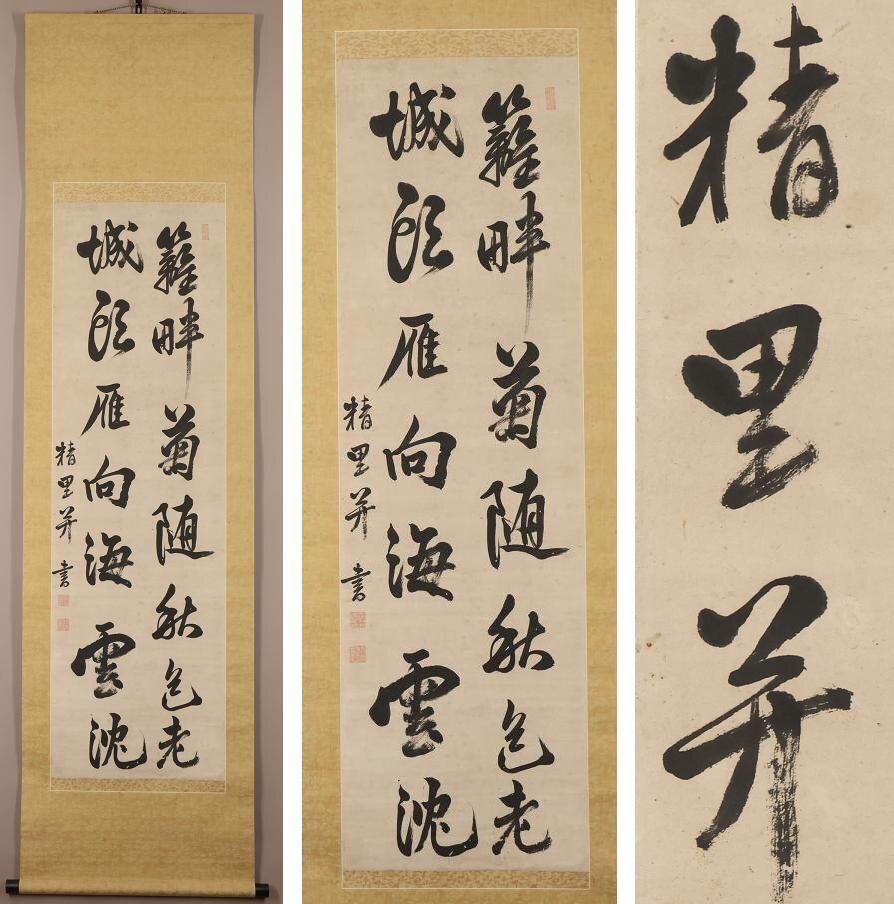 籬畔菊随秋色老
城頭雁向海雲沈
精里并書
籬畔菊随秋色老
城頭雁向海雲沈
精里并書
精里并